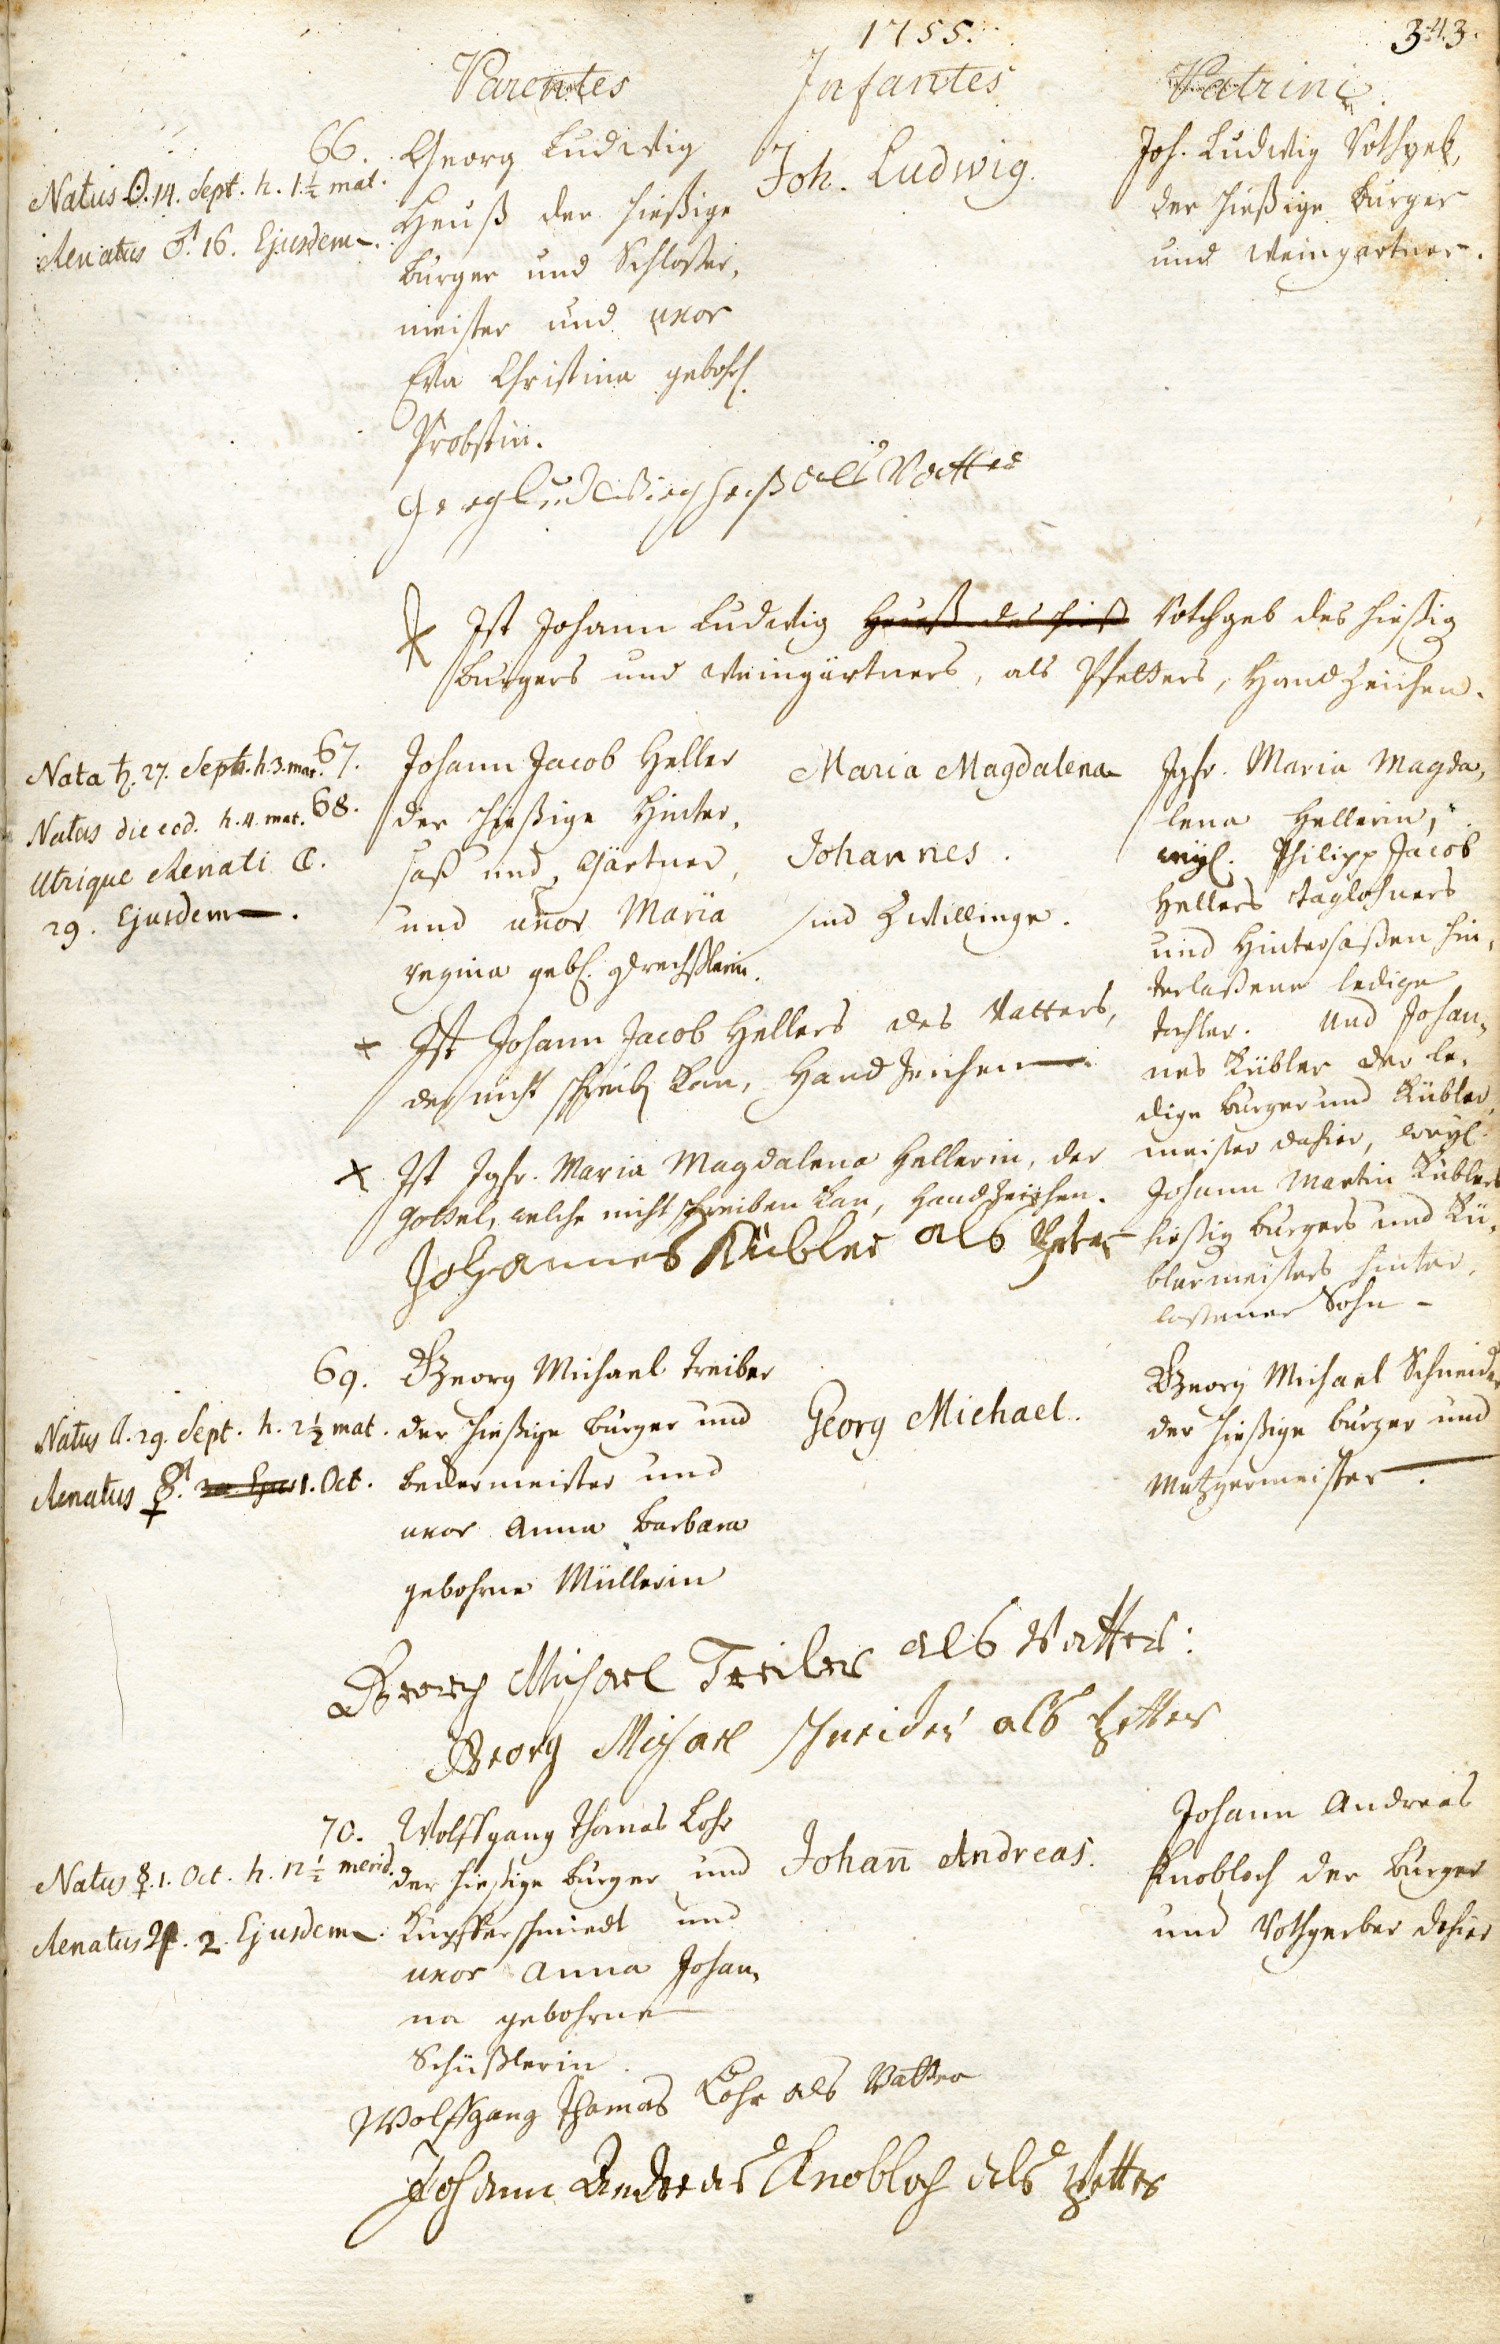 1755.
343.
Parentes
Infantes
Patrini
66.
Natus ☉. 14. Sept. h. 1½ mat.
Renatus ♂. 16. Ejusdem.
Georg Ludwig
Heuß der hießige
Burger und Schloßer,
meister und uxor
Eva Christina gebohr.
Probstin.
Joh. Ludwig.
Joh. Ludwig Rothgeb,
der hießige Burger
und Weingartner.
Georg Ludwig Heuß als Vatter
Ist Johann Ludwig Heuß des hieß Rothgeb des hießig
Burgers und Weingärtners, als Pfetters, Handzeichen.
67.
Nata ♄. 27. Sept. h. 3. mat.
68.
Natus die eod. h. 4. mat.
Utrique Renati ☾.
29. Ejusdem.
Johann Jacob Heller
der hießige Hinter,
saß und Gärtner,
und uxor Maria
Regina geb.
Maria Magdalena
Johannes.
sind Zwillinge.
Jgfr. Maria Magda,
lena Hellerin,
weyl. Philipp Jacob
Hellers Taglöhners
und Hintersaßen hin,
terlaßene ledige
Tochter. Und Johan,
nes Kübler der le,
dige Burger und Kübler,
meister dahier, weyl.
Johann Martin Küblers
hießig Burgers und Kü,
blermeisters hinter,
laßener Sohn
+ Ist Johann Jacob Hellers des Vatters,
der nicht schreiben kan, Handzeichen.
x Ist Jgfr. Maria Magdalena Hellerin, der
Gottel, welche nicht schreiben kan, Handzeichen.
Johannes Kübler als Petter
69.
Natus ☾. 29. Sept. h. 2½ mat.
Renatus ☿. 1. Oct.
Georg Michael Treiber
der hießige Burger und
Beckermeister und
uxor Anna Barbara
gebohrne Müllerin
Georg Michael.
Georg Michael Schneider
der hießige Burger und
Metzgermeister.
Georg Michael Treiber als Vatter:
Georg Michael Schneider als Petter
70.
Natus ☿. 1. Oct. h. 12½ merid.
Renatus ♃. 2. Ejusdem.
Wolffgang Thomas Lohr
der hießige Burger und
Kupfferschmiedt und
uxor Anna Johan,
na gebohrne
Schüßlerin.
Johañ Andreas.
Johann Andreas
Knobloch der Burger
und Rothgerber dahier
Wolffgang Thomas Lohr als Vatter
Johann Andreas Knobloch als Petter